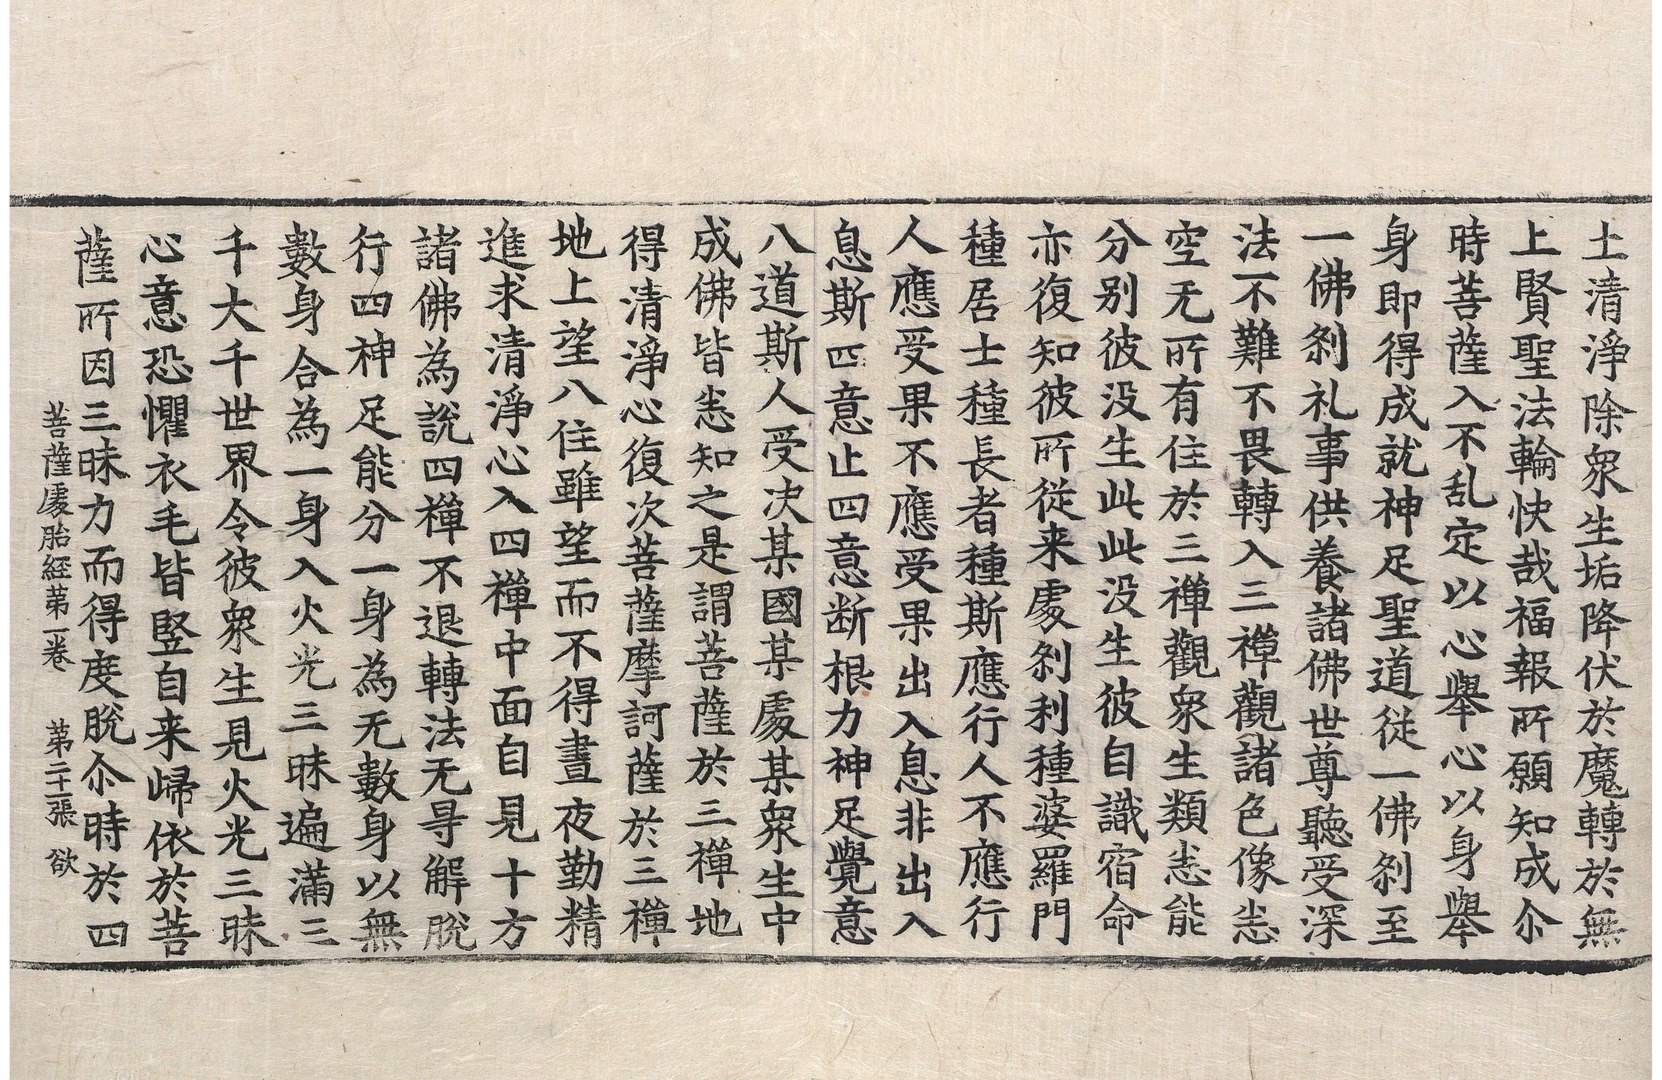 土清淨除衆生垢降伏於魔轉於無
上賢聖法輪快哉福報所願知成尒
時菩薩入不乱定以心舉心以身舉
身即得成就神足聖道從一佛刹至
一佛刹礼事供養諸佛世尊聽受深
法不難不畏轉入三禪觀諸色像悉
空无所有住於三禪觀衆生類悉能
分别彼没生此此没生彼自識宿命
亦復知彼所從来處刹利種婆羅門
種居士種長者種斯應行人不應行
人應受果不應受果出入息非出入
息斯四意止四意断根力神足覺意
八道斯人受决某國某處某衆生中
成佛皆悉知之是謂菩薩於三禪地
得清淨心復次菩薩摩訶薩於三禪
地上望八住雖望而不得晝夜勤精
進求清淨心入四禪中面自見十方
諸佛為說四禪不退轉法无㝵解脫
行四神足能分一身為无數身以無
數身合為一身入火光三昧遍滿三
千大千世界令彼衆生見火光三昧
心意恐懼衣毛皆竪自来歸依於菩
薩所因三昧力而得度脫尒時於四
菩薩處胎經第一卷 第二十張 欲